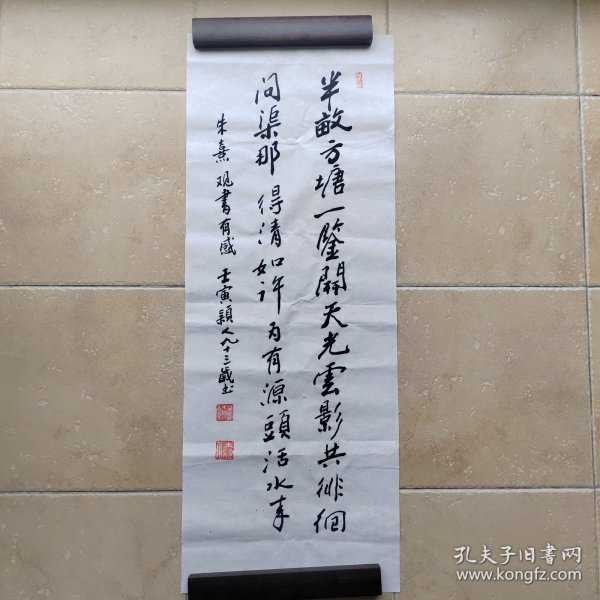 半畝方塘一鑒開天光雲影共徘徊
问渠那得清如许为有源頭活水来
朱熹观書有感壬寅穎人九十三歲书
孔夫子旧書网
www.kongfz.com